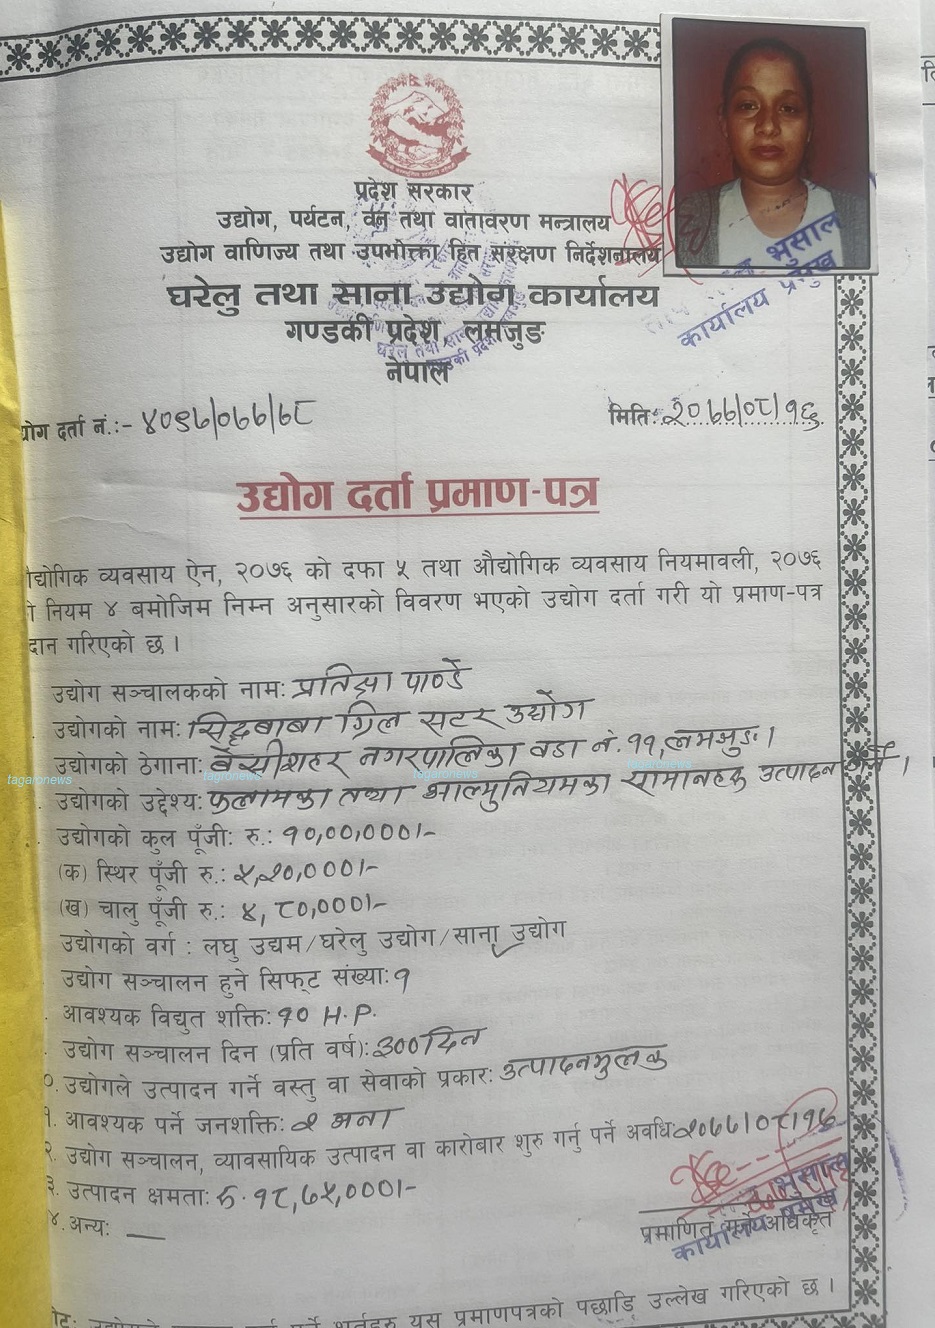 प्रदेश सरकार
उद्योग, पर्यटन, वन तथा वातावरण मन्त्रालय
उद्योग वाणिज्य तथा उपभोक्ता हित संरक्षण निर्देशनालय
घरेलु तथा साना उद्योग कार्यालय
गण्डकी प्रदेश, लमजुङ
नेपाल
भुसाल
कार्यालय प्रमुख
द्योग दर्ता नं.:- ४०९७/०७७/७८
मिति: २०७७/०८/१६
उद्योग दर्ता प्रमाण-पत्र
द्योगिक व्यवसाय ऐन, २०७६ को दफा ५ तथा औद्योगिक व्यवसाय नियमावली, २०७६
नियम ४ बमोजिम निम्न अनुसारको विवरण भएको उद्योग दर्ता गरी यो प्रमाण-पत्र
दान गरिएको छ ।
उद्योग सञ्चालकको नाम: प्रतिक्षा पाण्डे
उद्योगको नाम: सिद्धबाबा ग्रिल सटर उद्योग
उद्योगको ठेगाना: बेसीशहर नगरपालिका वडा नं. ११, लमजुङ ।
उद्योगको उद्देश्य: फलामका तथा आल्मुनियमका सामानहरु उत्पादन गर्ने ।
tagaronews tagaronews tagaronews tagaronews
उद्योगको कुल पूँजी: रु.: १०,००,०००।-
(क) स्थिर पूँजी रु.: ५,२०,०००।-
(ख) चालु पूँजी रु.: ४,८०,०००।-
उद्योगको वर्ग : लघु उद्यम/घरेलु उद्योग/साना उद्योग
उद्योग सञ्चालन हुने सिफ्ट संख्या: १
आवश्यक विद्युत शक्ति: १० H.P.
उद्योग सञ्चालन दिन (प्रति वर्ष): ३०० दिन
०. उद्योगले उत्पादन गर्ने वस्तु वा सेवाको प्रकार: उत्पादनमुलक
१. आवश्यक पर्ने जनशक्ति: २ जना
२. उद्योग सञ्चालन, व्यावसायिक उत्पादन वा कारोबार शुरु गर्नु पर्ने अवधि २०७७/०८/१६
३. उत्पादन क्षमता: रु. १८,७५,०००।-
४. अन्य: —
भुसाल
कार्यालय प्रमुख
प्रमाणित गर्ने अधिकृत
शर्तहरु यस प्रमाणपत्रको पछाडि उल्लेख गरिएको छ ।